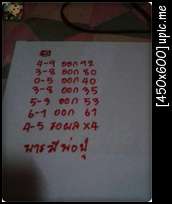 4-9 ออก 92
3-8 ออก 80
0-5 ออก 40
3-8 ออก 35
5-3 ออก 53
6-1 ออก 61
4-5 รอผล x4
บารมีพ่อปู่
[450x600] upic.me